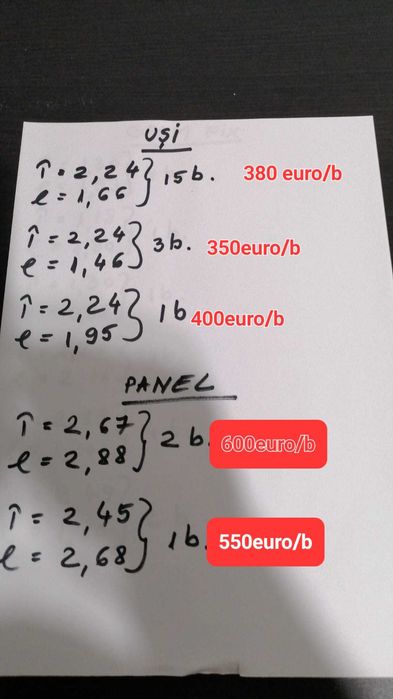 UȘI
Î = 2,24
l = 1,66 } 15 b. 380 euro/b
Î = 2,24
l = 1,46 } 3 b. 350euro/b
Î = 2,24
l = 1,95 } 1 b 400euro/b
PANEL
Î = 2,67
l = 2,88 } 2 b. 600euro/b
Î = 2,45
l = 2,68 } 1 b. 550euro/b